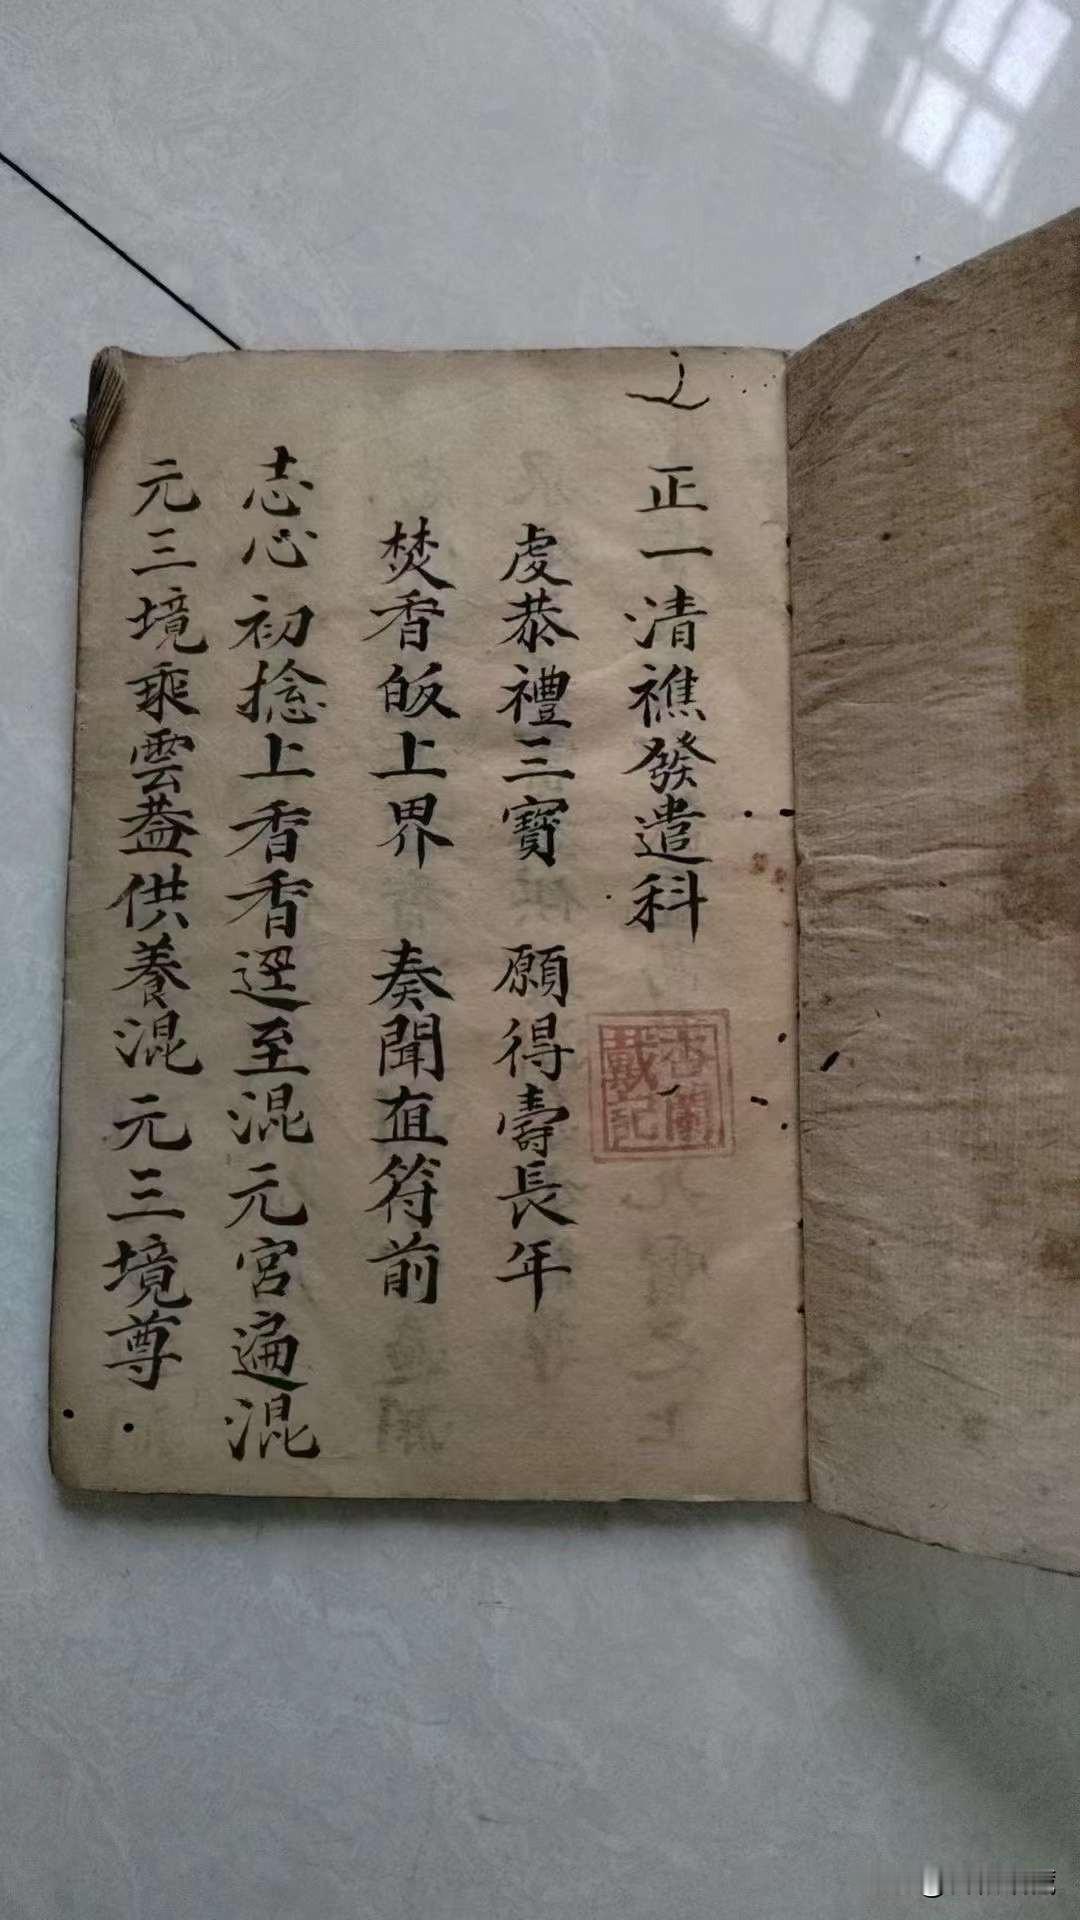 正一清醮發遣科
虔恭禮三寶 願得壽長年
焚香皈上界 奏聞直符前
志心 初捻上香香逕至混元宮遍混
元三境乘雲蓋供養混元三境尊
杏蘭
戴記